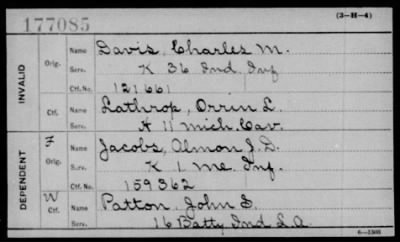 177085
(3-H-4)
INVALID
Orig.
Name Davis, Charles M.
Serv. K 36 Ind Inf
Ctf. No. 121661
Ctf.
Name Lathrop, Orrin L.
Serv. A 11 Mich. Cav.
DEPENDENT
Orig.
Name Jacobs, Almon J. D.
Serv. K 1 Me. Inf.
Ctf. No. 159362
W
Ctf.
Name Patton John S.
Serv. 16 Batty Ind L.A.